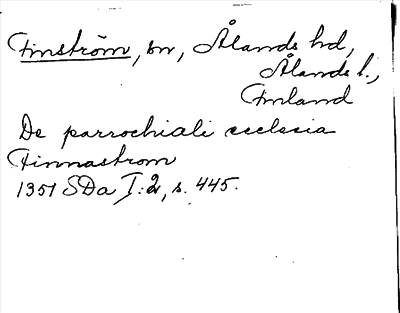 Finström, sn, Ålands hd,
Ålands l.,
Finland
De parrochiali ecclesia
Finnastrom
1351 SDa I:2, s. 445.